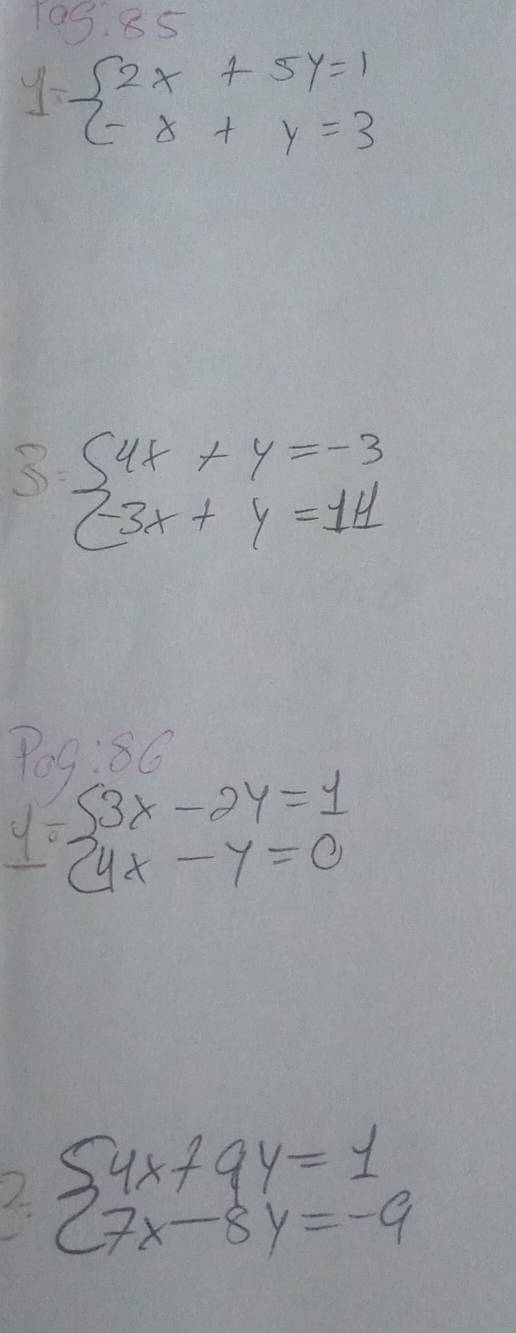 Pag: 85
1= { 2x + 5y = 1
- x + y = 3
3= { 4x + y = -3
-3x + y = 11
Pag: 86
1= { 3x - 2y = 1
4x - y = 0
{ 4x + 9y = 1
7x - 8y = -9